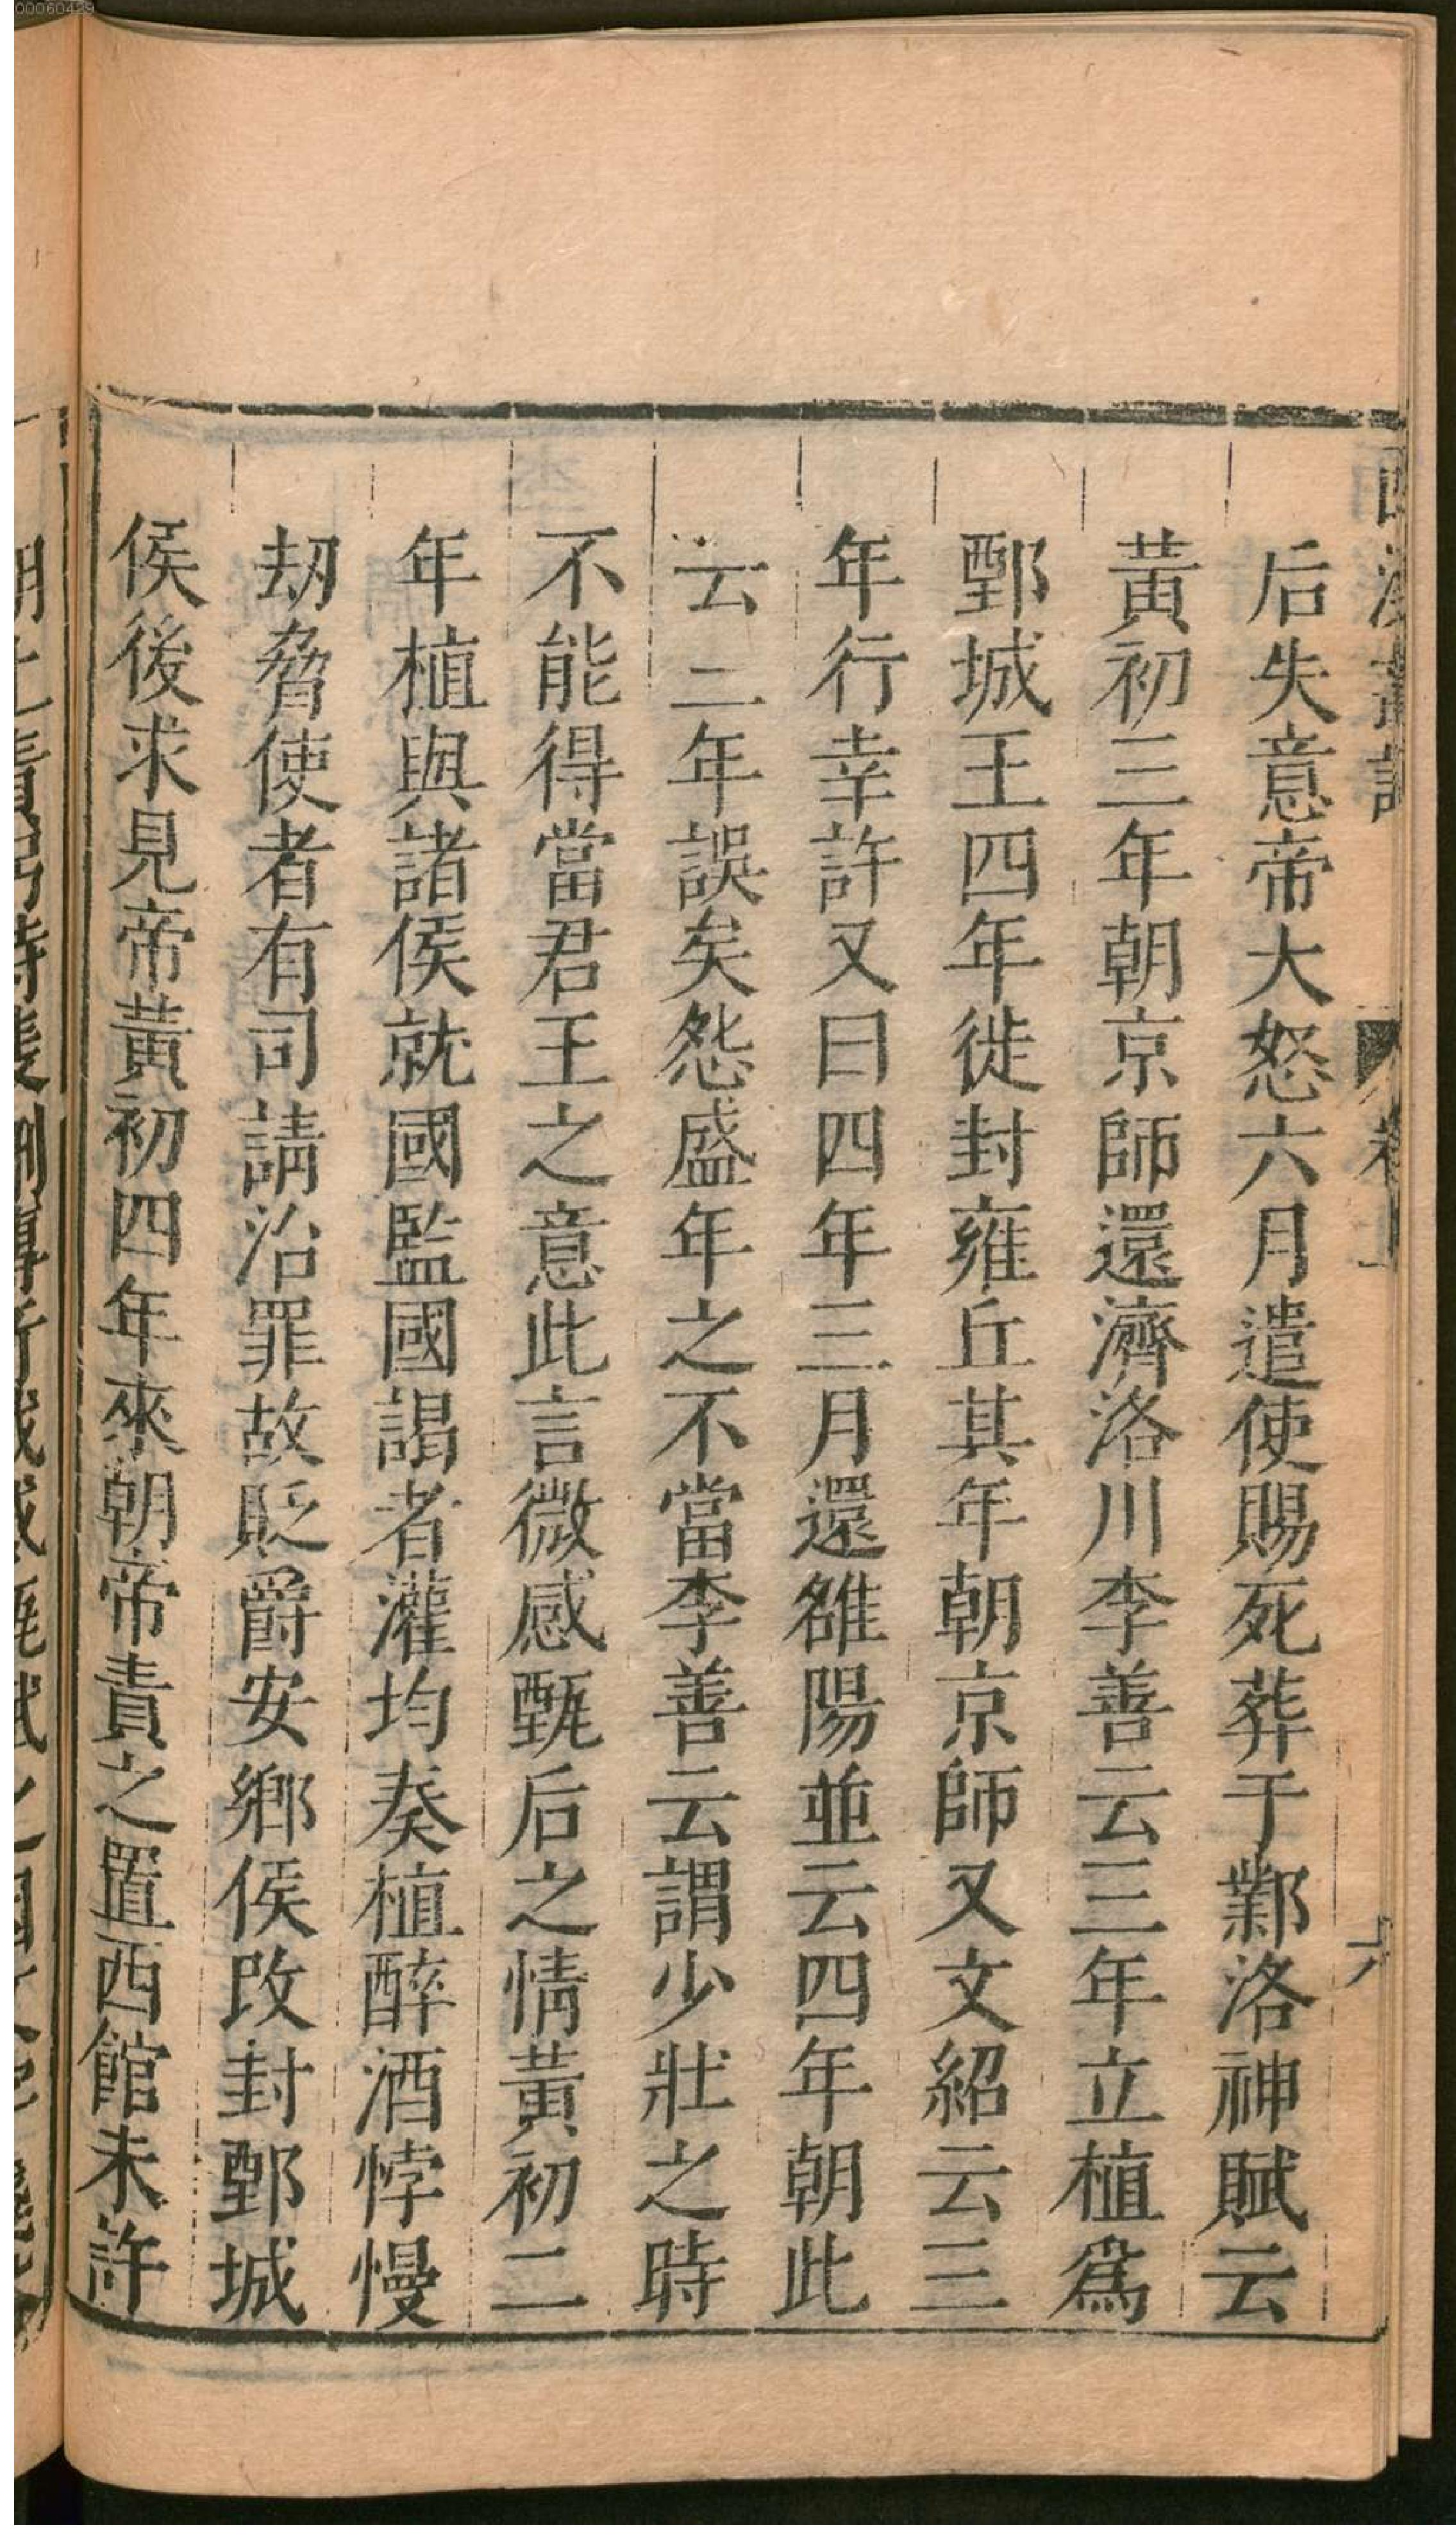 后失意帝大怒六月遣使賜死葬于鄴洛神賦云
黃初三年朝京師還濟洛川李善云三年立植爲
鄄城王四年徙封雍丘其年朝京師又文紹云三
年行幸許又曰四年三月還雒陽並云四年朝此
云二年誤矣怨盛年之不當李善云謂少壯之時
不能得當君王之意此言微感甄后之情黃初二
年植與諸侯就國監國謁者灌均奏植醉酒悖慢
劫脅使者有司請治罪故貶爵安鄉侯改封鄄城
侯後求見帝黃初四年來朝帝責之置西館未許
六
00060429